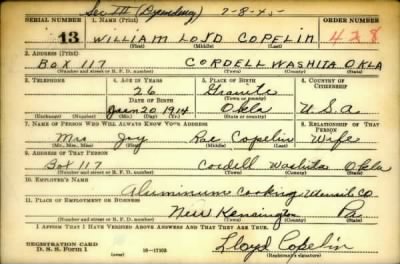 Sec III (Dependency) 2-8-45
SERIAL NUMBER 1. NAME (Print) ORDER NUMBER
13 WILLIAM LOYD COPELIN 428
(First) (Middle) (Last)
2. ADDRESS (Print)
BOX 117 CORDELL WASHITA OKLA
(Number and street or R. F. D. number) (Town) (County) (State)
3. TELEPHONE 4. AGE IN YEARS 5. PLACE OF BIRTH 6. COUNTRY OF CITIZENSHIP
26 Granite
DATE OF BIRTH (Town or county)
Jan 20 1914 Okla U.S.A
(Exchange) (Number) (Mo.) (Day) (Yr.) (State or country)
7. NAME OF PERSON WHO WILL ALWAYS KNOW YOUR ADDRESS 8. RELATIONSHIP OF THAT PERSON
Mrs Joy Rae Copelin Wife
(Mr., Mrs., Miss) (First) (Middle) (Last)
9. ADDRESS OF THAT PERSON
Box 117 Cordell Washita Okla
(Number and street or R. F. D. number) (Town) (County) (State)
10. EMPLOYER'S NAME
Aluminum Cooking Utensils CO
11. PLACE OF EMPLOYMENT OR BUSINESS
New Kensington Pa
(Number and street or R. F. D. number) (Town) (County) (State)
I AFFIRM THAT I HAVE VERIFIED ABOVE ANSWERS AND THAT THEY ARE TRUE.
REGISTRATION CARD
D. S. S. Form 1 16-17105 Lloyd Copelin
(Registrant's signature)